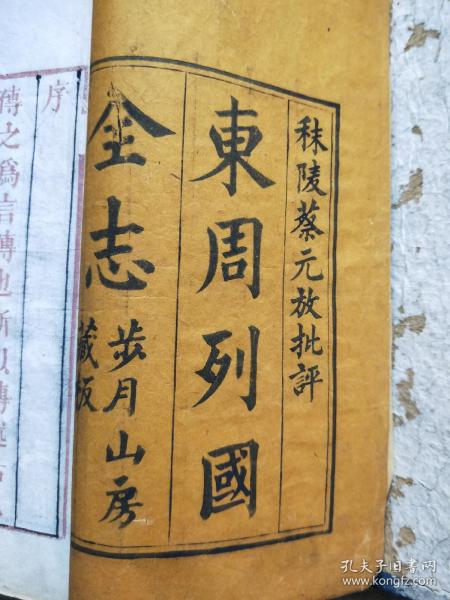 秣陵蔡元放批評
東周列國
全志
步月山房
藏板
序
傳之爲言傳也所以傳
孔夫子旧书网
www.kongfz.com